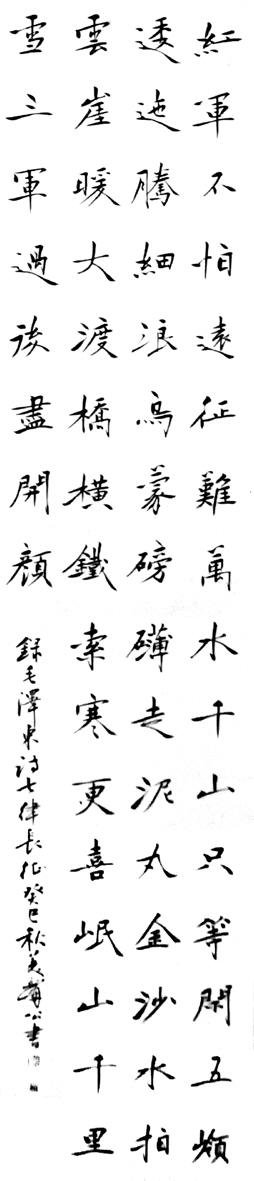 紅軍不怕遠征難萬水千山只等閑五嶺
逶迤騰細浪烏蒙磅礴走泥丸金沙水拍
雲崖暖大渡橋橫鐵索寒更喜岷山千里
雪三軍過後盡開顏
錄毛澤東詩七律長征癸巳秋公書